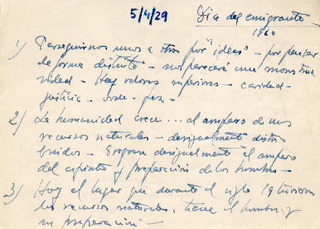 5/4/29
Día del emigrante
1960
1) Perseguirnos unos a otros por "ideas" - por pensar
de forma distinta - nos parecerá una monstruo
sidad - Hay valores superiores - caridad -
justicia - orden - paz -
2) La humanidad crece ... al amparo de sus
recursos naturales - desigualmente distri
buidos - Progresa desigualmente al amparo
del esfuerzo y preparación de los hombres -
3) Hoy el lugar que durante el siglo 19 tuvieron
los recursos naturales, tiene el hombre y
su preparación -